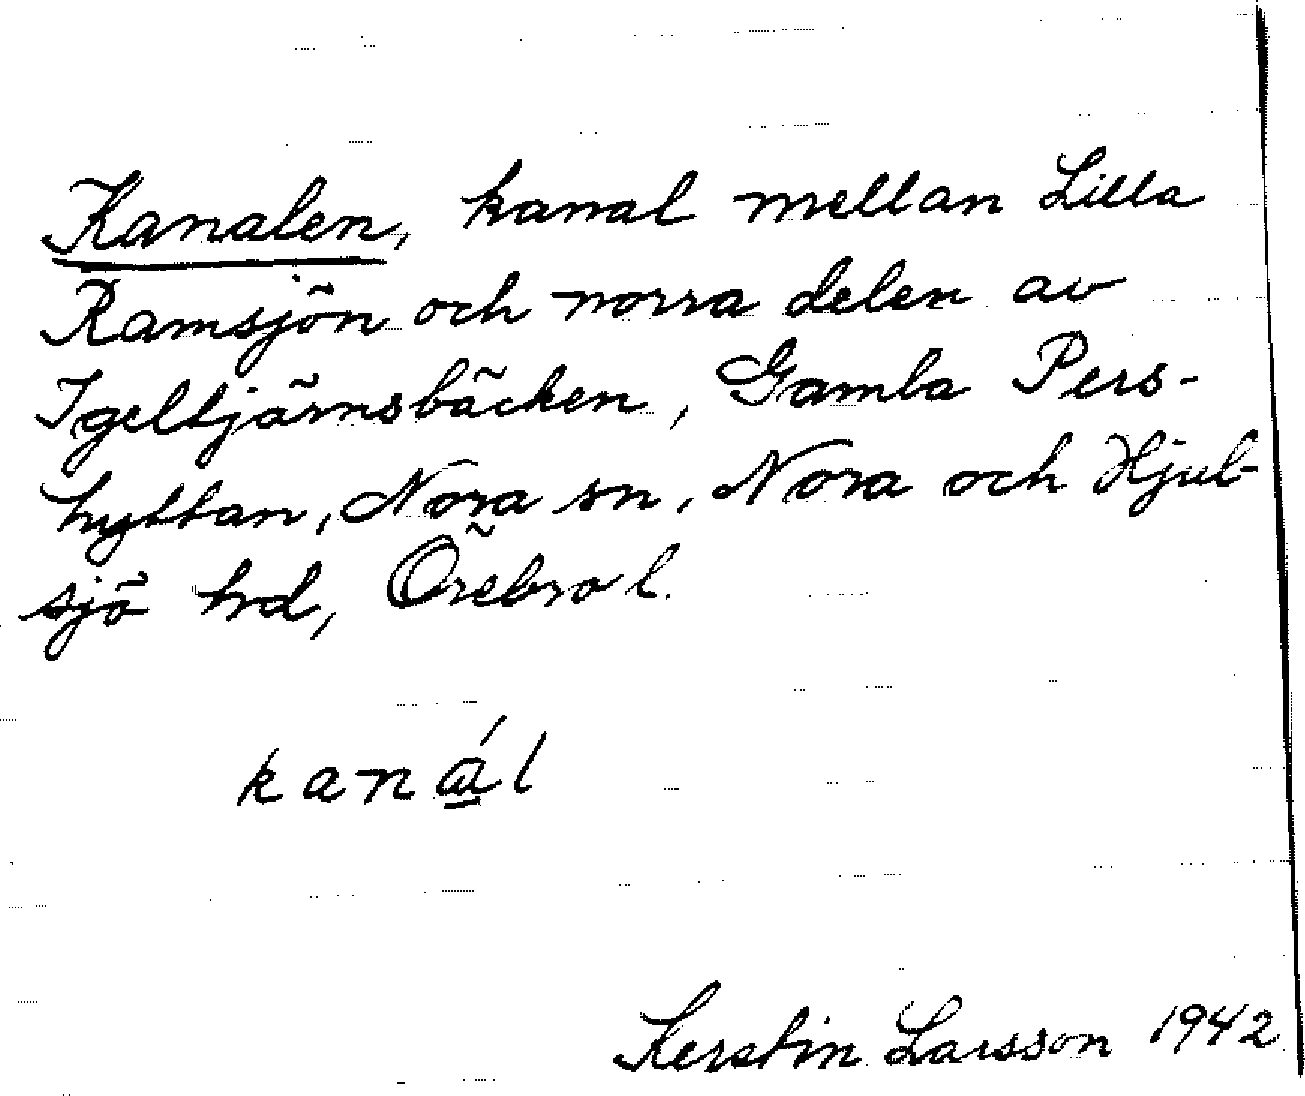 Kanalen, kanal mellan Lilla
Ramsjön och norra delen av
Igeltjärnsbäcken, Gamla Pers-
hyttan, Nora sn, Nora och Hjul-
sjö hrd, Örebro l.
kanál
Kerstin Larsson 1942